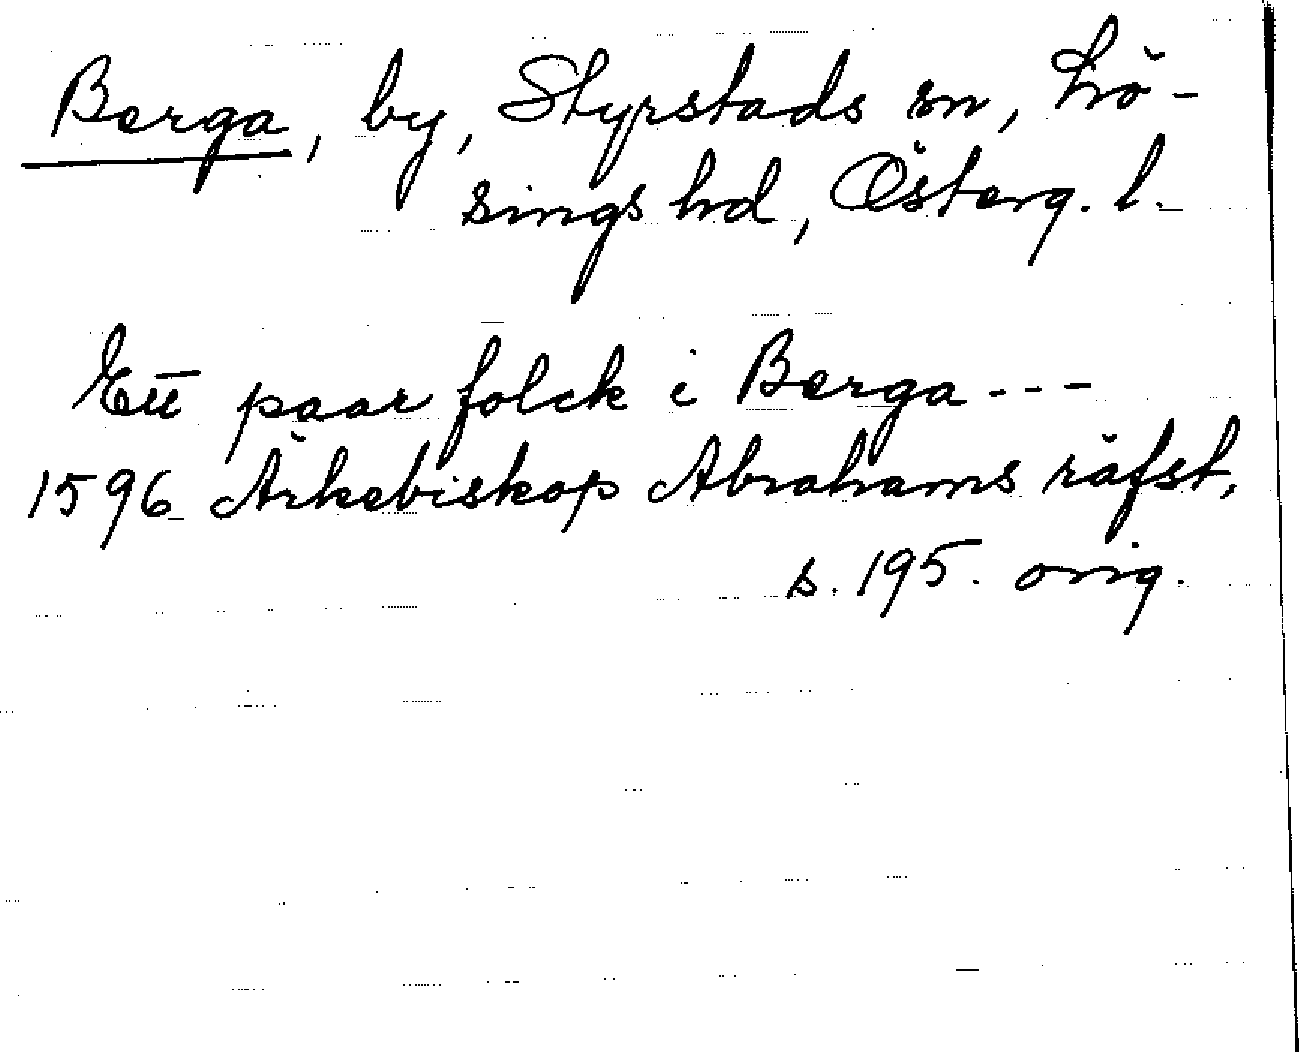 Berga, by, Styrstads sn, Lö-
sings hd, Österg. l.
Ett paar folck i Berga---
1596 Ärkebiskop Abrahams räfst,
s. 195. orig.